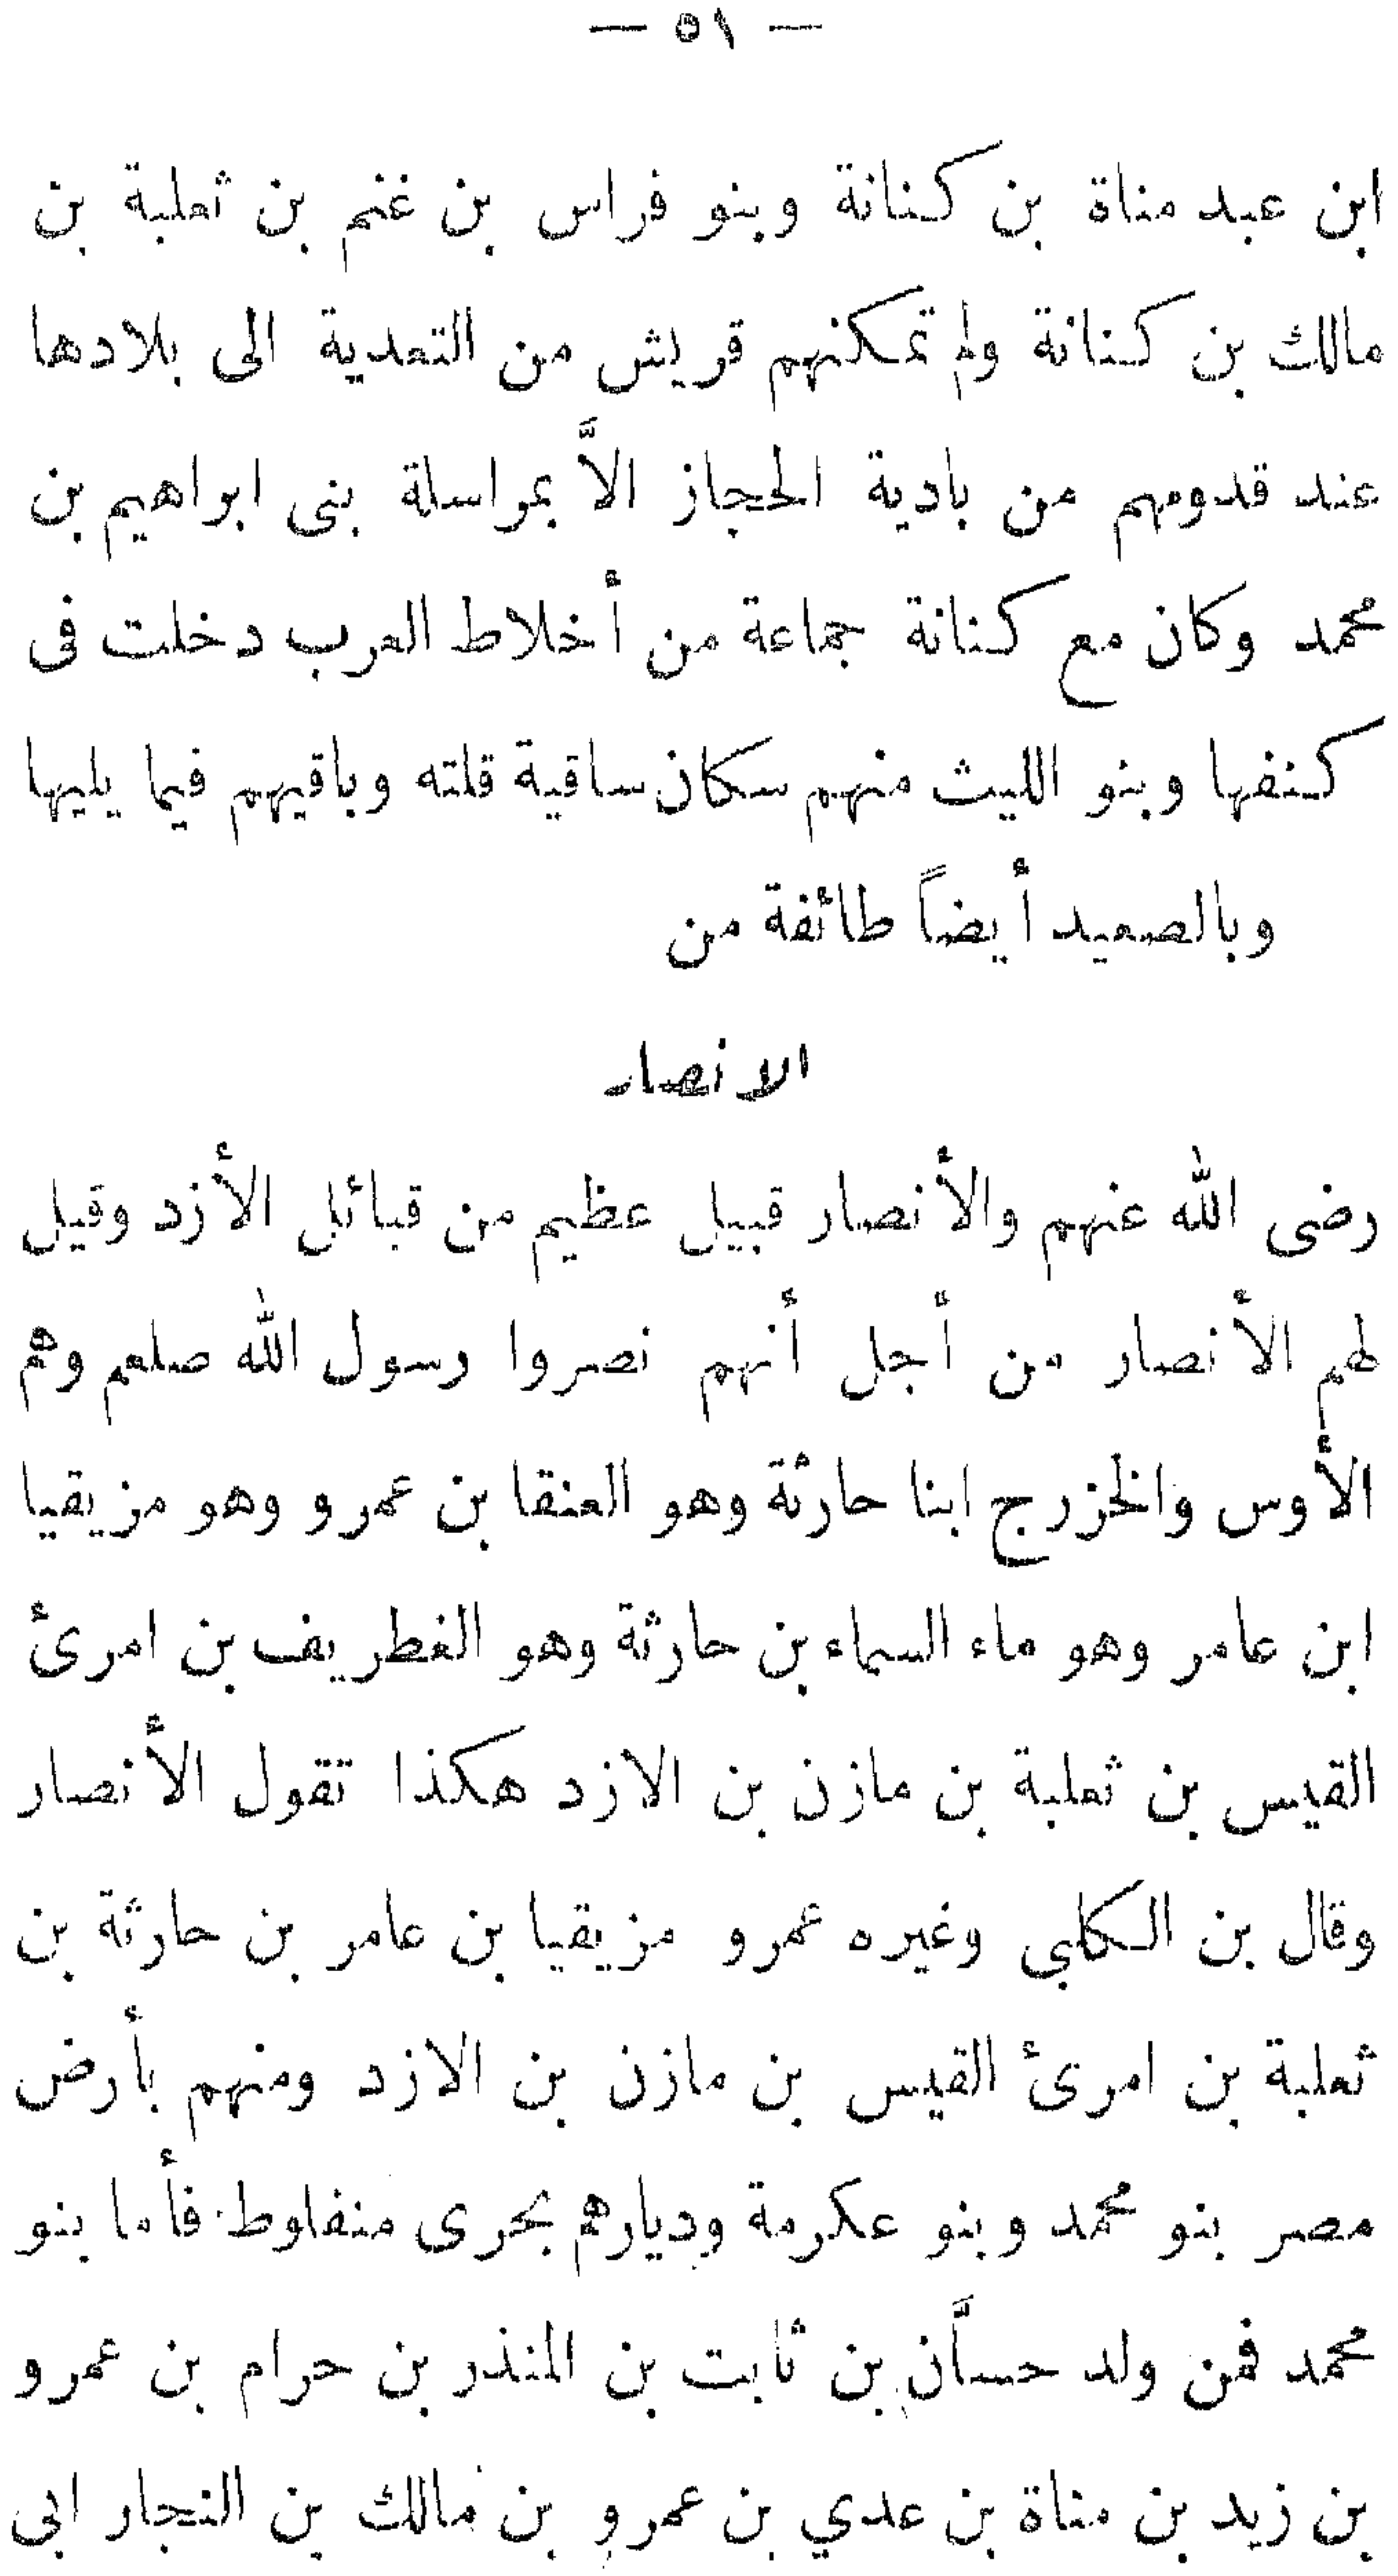 — ٥١ —
ابن عبد مناة بن كنانة وبنو فراس بن غنم بن ثعلبة بن
مالك بن كنانة ولم تمكنهم قريش من التعدية الى بلادها
عند قدومهم من بادية الحجاز الاَّ بمراسلة بنى ابراهيم بن
محمد وكان مع كنانة جماعة من أخلاط العرب دخلت فى
كنفها وبنو الليث منهم سكان ساقية قلته وباقيهم فيما يليها
وبالصعيد أيضاً طائفة من
الانصار
رضى الله عنهم والأنصار قبيل عظيم من قبائل الأزد وقيل
لهم الأنصار من أجل أنهم نصروا رسول الله صلعم وهم
الأوس والخزرج ابنا حارثة وهو العنقا بن عمرو وهو مزيقيا
ابن عامر وهو ماء السماء بن حارثة وهو الغطريف بن امرئ
القيس بن ثعلبة بن مازن بن الازد هكذا تقول الأنصار
وقال بن الكلبى وغيره عمرو مزيقيا بن عامر بن حارثة بن
ثعلبة بن امرئ القيس بن مازن بن الازد ومنهم بأرض
مصر بنو محمد وبنو عكرمة وديارهم بحرى منفلوط فأما بنو
محمد فمن ولد حسَّان بن ثابت بن المنذر بن حرام بن عمرو
بن زيد بن مناة بن عدي بن عمرو بن مالك بن النجار ابى